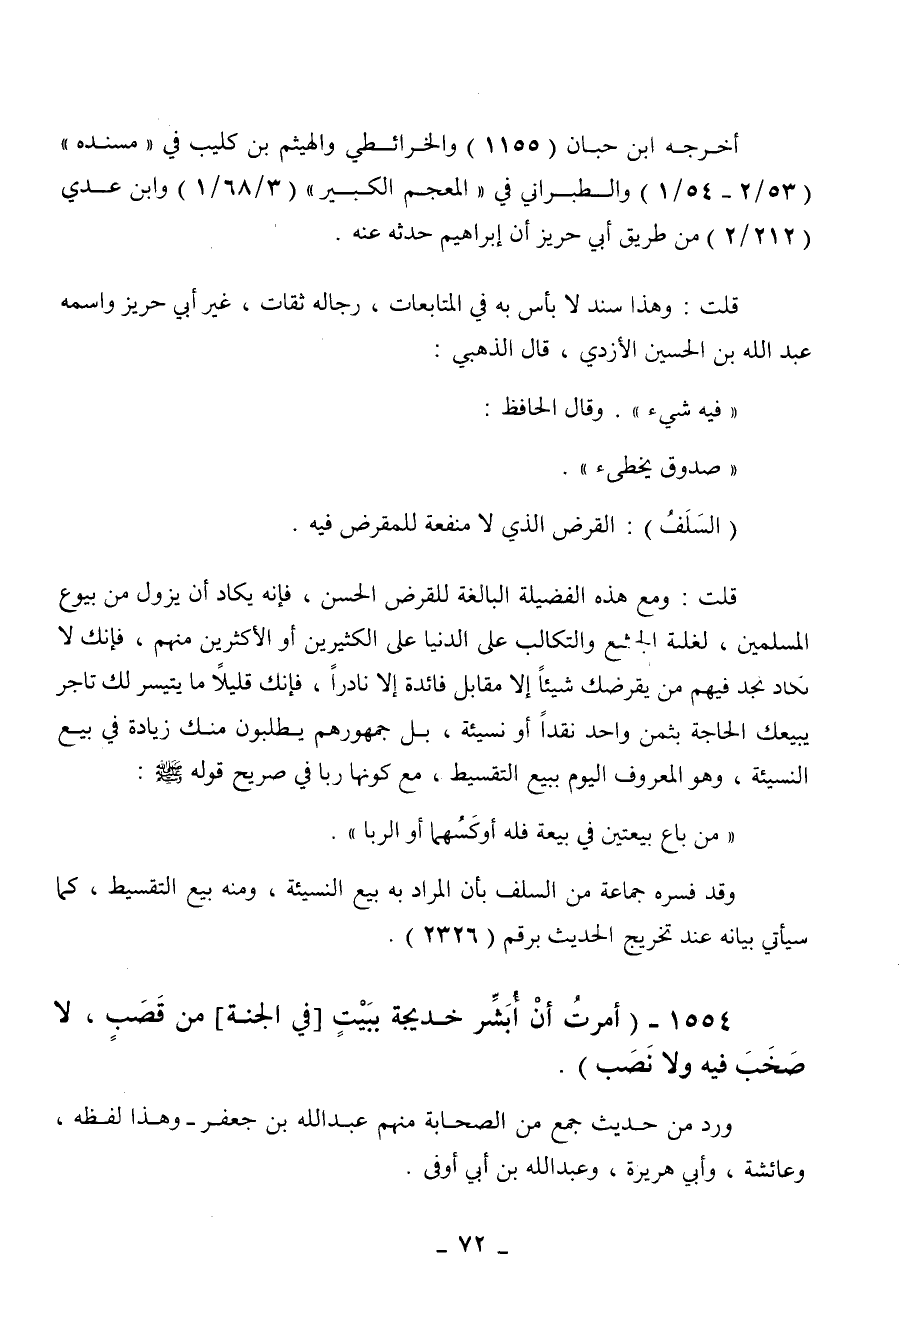 أخرجه ابن حبان ( ١١٥٥ ) والخرائطي والهيثم بن كليب في « مسنده »
( ٥٣/٢ ـ ٥٤/١ ) والطبراني في « المعجم الكبير » ( ٣/٦٨/١ ) وابن عدي
( ٢١٢/٢ ) من طريق أبي حريز أن إبراهيم حدثه عنه .
قلت : وهذا سند لا بأس به في المتابعات ، رجاله ثقات ، غير أبي حريز واسمه
عبد الله بن الحسين الأزدي ، قال الذهبي :
« فيه شيء » . وقال الحافظ :
« صدوق يخطىء » .
( السَلَفُ ) : القرض الذي لا منفعة للمقرض فيه .
قلت : ومع هذه الفضيلة البالغة للقرض الحسن ، فإنه يكاد أن يزول من بيوع
المسلمين ، لغلبة الجشع والتكالب على الدنيا على الكثيرين أو الأكثرين منهم ، فإنك لا
تكاد تجد فيهم من يقرضك شيئاً إلا مقابل فائدة إلا نادراً ، فإنك قليلاً ما يتيسر لك تاجر
يبيعك الحاجة بثمن واحد نقداً أو نسيئة ، بل جمهورهم يطلبون منك زيادة في بيع
النسيئة ، وهو المعروف اليوم ببيع التقسيط ، مع كونها ربا في صريح قوله ﷺ :
« من باع بيعتين في بيعة فله أوكَسُهما أو الربا » .
وقد فسره جماعة من السلف بأن المراد به بيع النسيئة ، ومنه بيع التقسيط ، كما
سيأتي بيانه عند تخريج الحديث برقم ( ٢٣٢٦ ) .
١٥٥٤ ـ ( أمرتُ أنْ أُبَشِّر خديجة ببَيْتٍ [في الجنة] من قَصَبٍ ، لا
صَخَبَ فيه ولا نَصَب ) .
ورد من حديث جمع من الصحابة منهم عبدالله بن جعفر ـ وهذا لفظه ،
وعائشة ، وأبي هريرة ، وعبدالله بن أبي أوفى .
ـ ٧٢ ـ